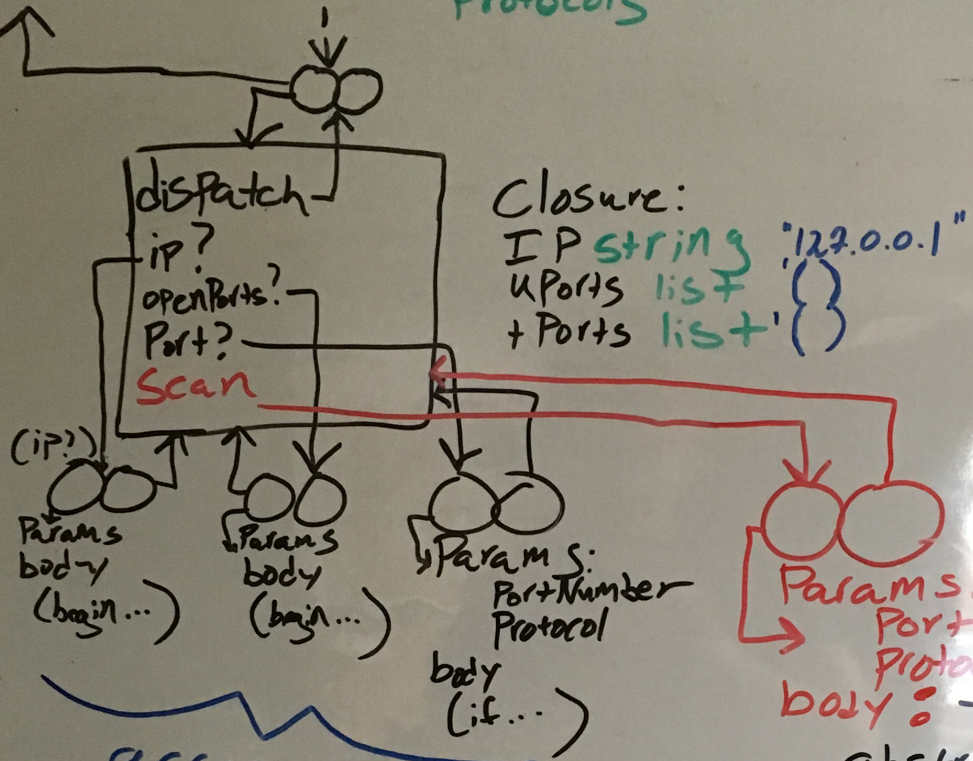 Protocols
dispatch
ip?
openPorts?
Port?
Scan
Closure:
IP string "127.0.0.1"
uPorts list '( )
tPorts list '( )
(ip?)
Params
body
(begin...)
Params
body
(begin...)
Params:
PortNumber
Protocol
body
(if...)
Params
Port
Proto
body: